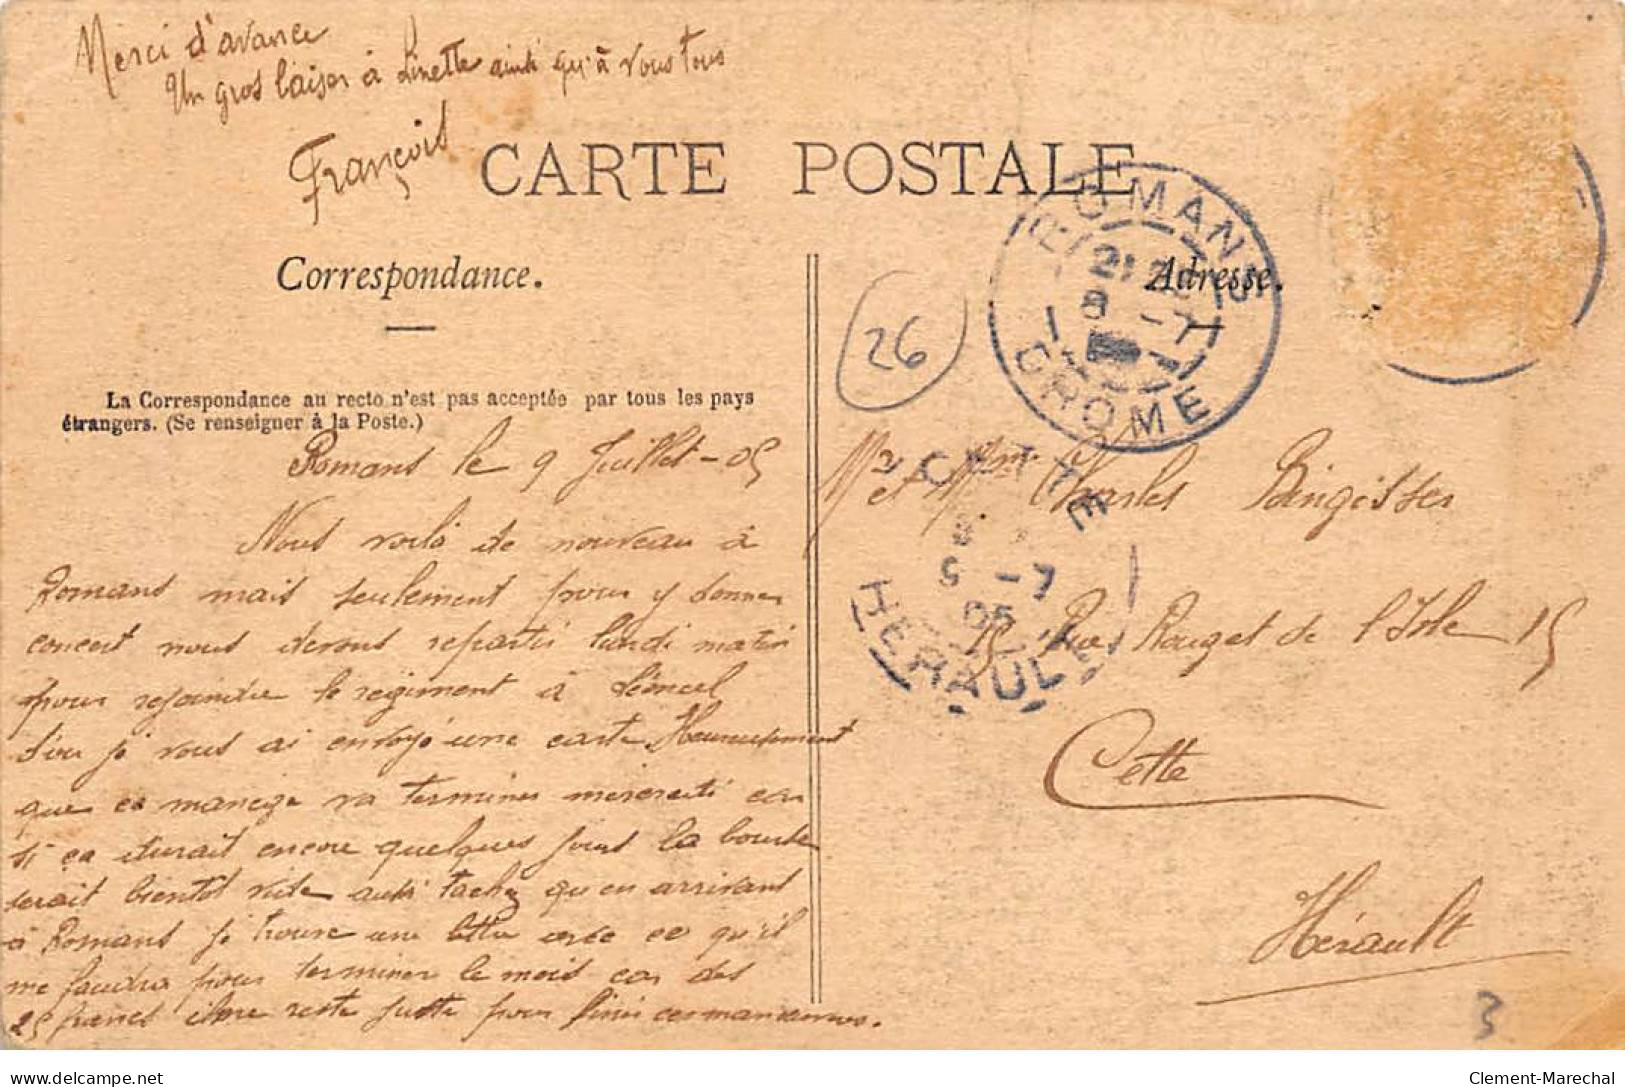 Merci d'avance
Un gros baiser à Linette ainsi qu'à vous tous
François
CARTE POSTALE
Correspondance.
Adresse.
La Correspondance au recto n'est pas acceptée par tous les pays
étrangers. (Se renseigner à la Poste.)
Romans le 9 Juillet-05
Nous voilà de nouveau à
Romans mais seulement pour y donner
concert nous devons repartir lundi matin
pour rejoindre le régiment à Léoncel
d'ou je vous ai envoyé une carte. Heureusement
que ce manège va terminer mercredi car
si ça durait encore quelques jours la bourse
serait bientôt vide aussi tachez qu'en arrivant
à Romans je trouve une lettre avec ce qu'il
me faudra pour terminer le mois car des
25 francs il me reste juste pour finir ces manœuvres.
26
ROMANS
21
8 -7
DROME
CETTE
9 -7
05
HERAULT
Mr et Mme Charles Bingisser
Rue Rouget de l'Isle 15
Cette
Hérault
3
delcampe.net
Clement-Marechal